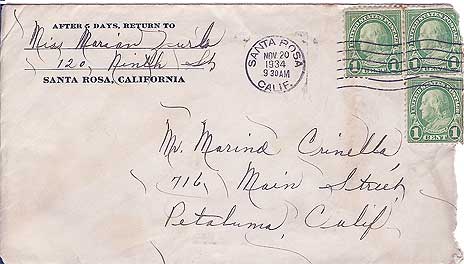 AFTER 5 DAYS, RETURN TO
Miss Marian
120 Ninth St
SANTA ROSA, CALIFORNIA
SANTA ROSA
NOV 20
1934
9 30 AM
CALIF.
UNITED STATES POSTAGE
1 CENT 1
UNITED STATES POSTAGE
1 CENT 1
1 CENT 1
Mr. Marino Crinella
716 Main Street
Petaluma, Calif.